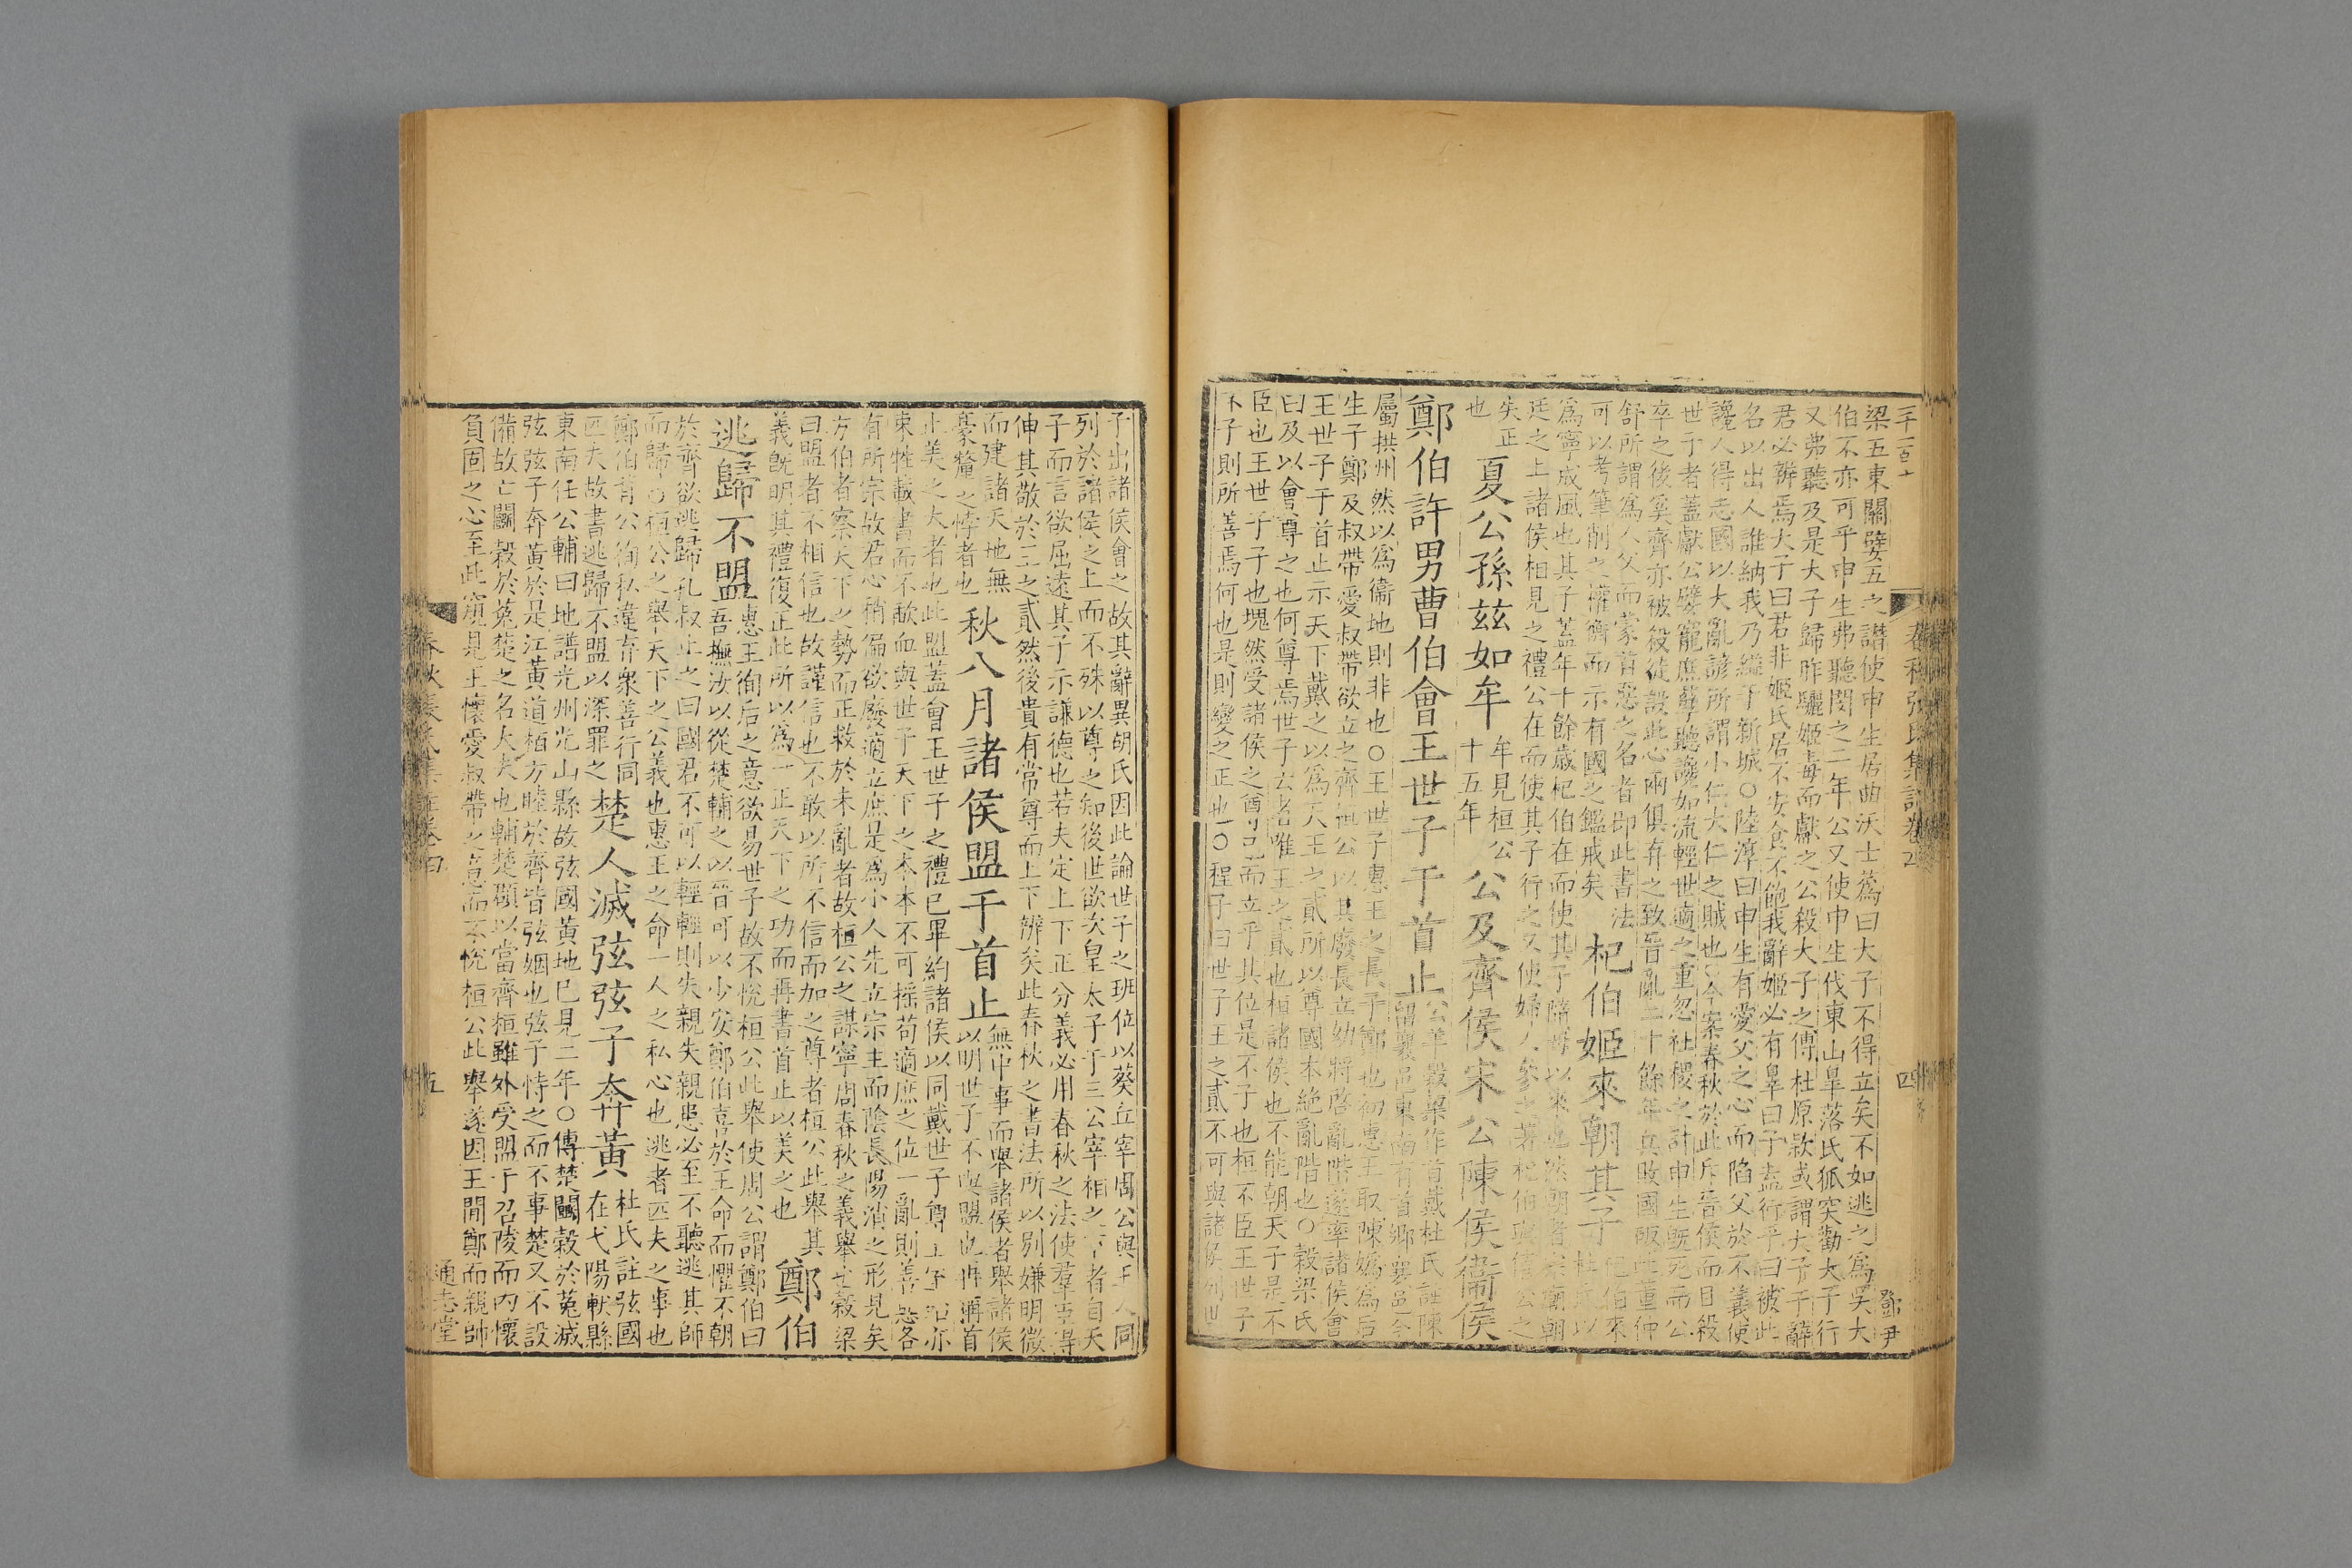 梁五東關嬖五之譖使申生居曲沃士蒍曰大子不得立矣不如逃之爲吳大
伯不亦可乎申生弗聽閔之二年公又使申生伐東山臯落氏狐突勸大子行
又弗聽及是大子歸胙驪姬毒而獻之公殺大子之傅杜原款或謂大子子辭
君必辨焉大子曰君非姬氏居不安食不飽我辭姬必有辠曰子盍行乎曰被此
名以出人誰納我乃縊于新城○陸淳曰申生有愛父之心而陷父於不義使
讒人得志國以大亂諺所謂小仁大仁之賊也○今案春秋於此斥晉侯而目殺
世子者蓋獻公嬖寵庶孽聽讒如流輕世適之重忽社稷之計申生旣死而公
卒之後奚齊亦被殺從設此心兩俱弃之致晉亂二十餘年
舒所謂爲人父而蒙首惡之名者卽此書法
可以考筆削之權衡而示有國之鑑戒矣
杞伯姬來朝其子
爲寧成風也其子蓋年十餘歲杞伯在而使其子
廷之上諸侯相見之禮公在而使其子行之又使婦人參
失正
也
夏公孫茲如牟
牟見桓公
十五年
公及齊侯宋公陳侯衞侯
鄭伯許男曹伯會王世子于首止
公羊穀梁作首戴杜氏註陳
留襄邑東南有首鄉襄邑今
屬拱州然以爲衞地則非也○王世子惠王之長子鄭也初惠王取陳嬀爲后
生子鄭及叔帶愛叔帶欲立之齊桓公以其廢長立幼將啓亂階遂率諸侯會
王世子于首止示天下戴之以爲天王之貳所以尊國本絕亂階也○穀梁氏
曰及以會尊之也何尊焉世子云者唯王之貳也桓諸侯也不能朝天子是不
臣也王世子子也塊然受諸侯之尊己而立乎其位是不子也桓不臣王世子
不子則所善焉何也是則變之正也○程子曰世子王之貳不可與諸侯列世
子出諸侯會之故其辭異胡氏因此論世子之班位以葵丘宰周公與王人同
列於諸侯之上而不殊以尊之知後世欲次皇太子于三公宰相之下者自天
子而言欲屈遠其子示謙德也若夫定上下正分義必用春秋之法使羣臣得
伸其敬於王之貳然後貴有常尊而上下辨矣此春秋之書法所以別嫌明微
而建諸天地無
豪釐之悖者也
秋八月諸侯盟于首止
無中事而舉諸侯者舉諸侯
以明世子不與盟也再稱首
止美之大者也此盟蓋會王世子之禮已畢約諸侯以同戴世子尊王室
束牲載書而不歃血與世子天下之本本不可搖苟適庶之位一亂則善惡各
有所宗故君心稍偏欲廢適立庶是爲小人先立宗主而陰長陽消之形見矣
方伯者察天下之勢而正救於未亂者故桓公之謀寧周春秋之義舉也穀梁
曰盟者不相信也故謹信也不敢以所不信而加之尊者桓公此舉其
義旣明其禮復正此所以爲一正天下之功而再書首止以美之也
鄭伯
逃歸不盟
惠王徇后之意欲易世子故不悅桓公此舉使周公謂鄭伯曰
吾撫汝以從楚輔之以晉可以少安鄭伯喜於王命而懼不朝
於齊欲逃歸孔叔止之曰國君不可以輕輕則失親失親患必至不聽逃其師
而歸○桓公之舉天下之公義也惠王之命一人之私心也逃者匹夫之事也
鄭伯背公徇私違弃衆善行同
匹夫故書逃歸不盟以深罪之
楚人滅弦弦子奔黃
杜氏註弦國
在弋陽軑縣
東南任公輔曰地譜光州光山縣故弦國黃地已見二年○傳楚鬭穀於菟滅
弦弦子奔黃於是江黃道栢方睦於齊皆弦姻也弦子恃之而不事楚又不設
備故亡鬭穀於菟楚之名大夫也輔楚頵以當齊桓雖外受盟于召陵而內懷
負固之心至此窺見王懷愛叔帶之意而不悅桓公此舉遂因王間鄭而親帥
通志堂